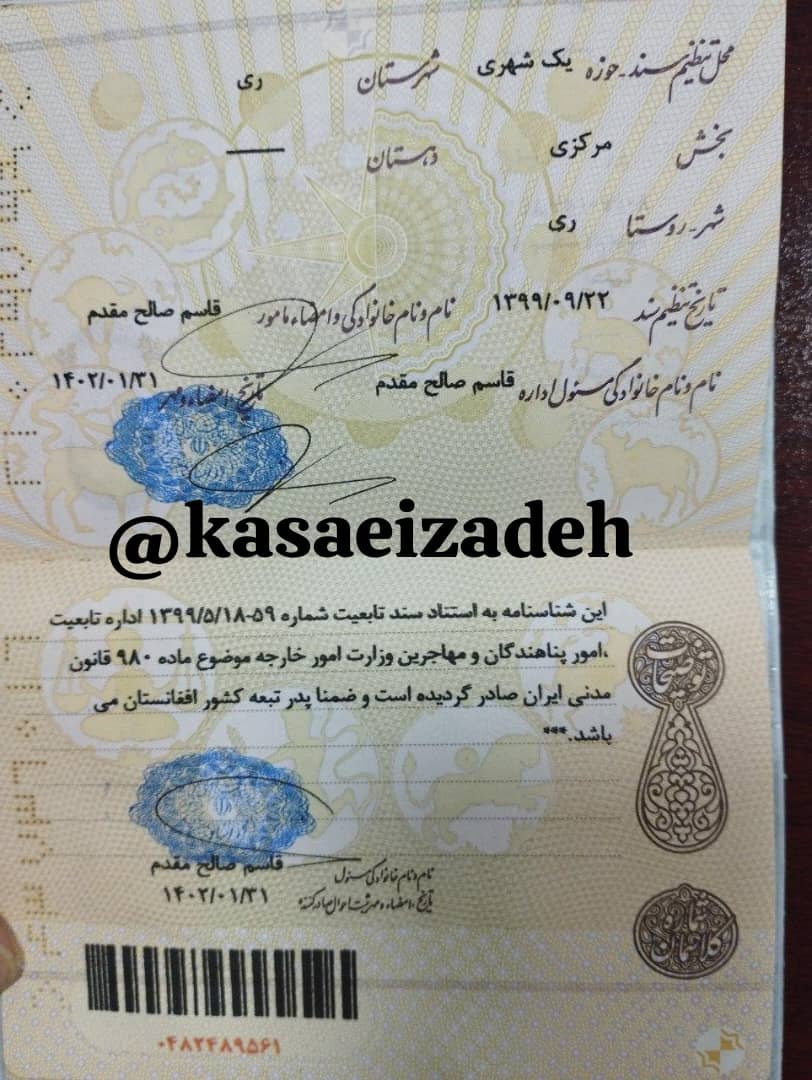 محل تنظیم سند - حوزه یک شهری شهرستان ری
بخش مرکزی دهستان ——
شهر - روستا ری
تاریخ تنظیم سند ۱۳۹۹/۰۹/۲۲ نام و نام خانوادگی و امضاء مامور قاسم صالح مقدم
نام و نام خانوادگی مسئول اداره قاسم صالح مقدم تاریخ، امضاء و مهر ۱۴۰۲/۰۱/۳۱
@kasaeizadeh
توضیحات
این شناسنامه به استناد سند تابعیت شماره ۵۹-۱۳۹۹/۵/۱۸ اداره تابعیت
،امور پناهندگان و مهاجرین وزارت امور خارجه موضوع ماده ۹۸۰ قانون
مدنی ایران صادر گردیده است و ضمنا پدر تبعه کشور افغانستان می
باشد.***
نام و نام خانوادگی مسئول قاسم صالح مقدم
تاریخ، امضاء و مهر ثبت احوال صادر کننده ۱۴۰۲/۰۱/۳۱
شماره
۰۴۸۲۴۸۹۵۶۱